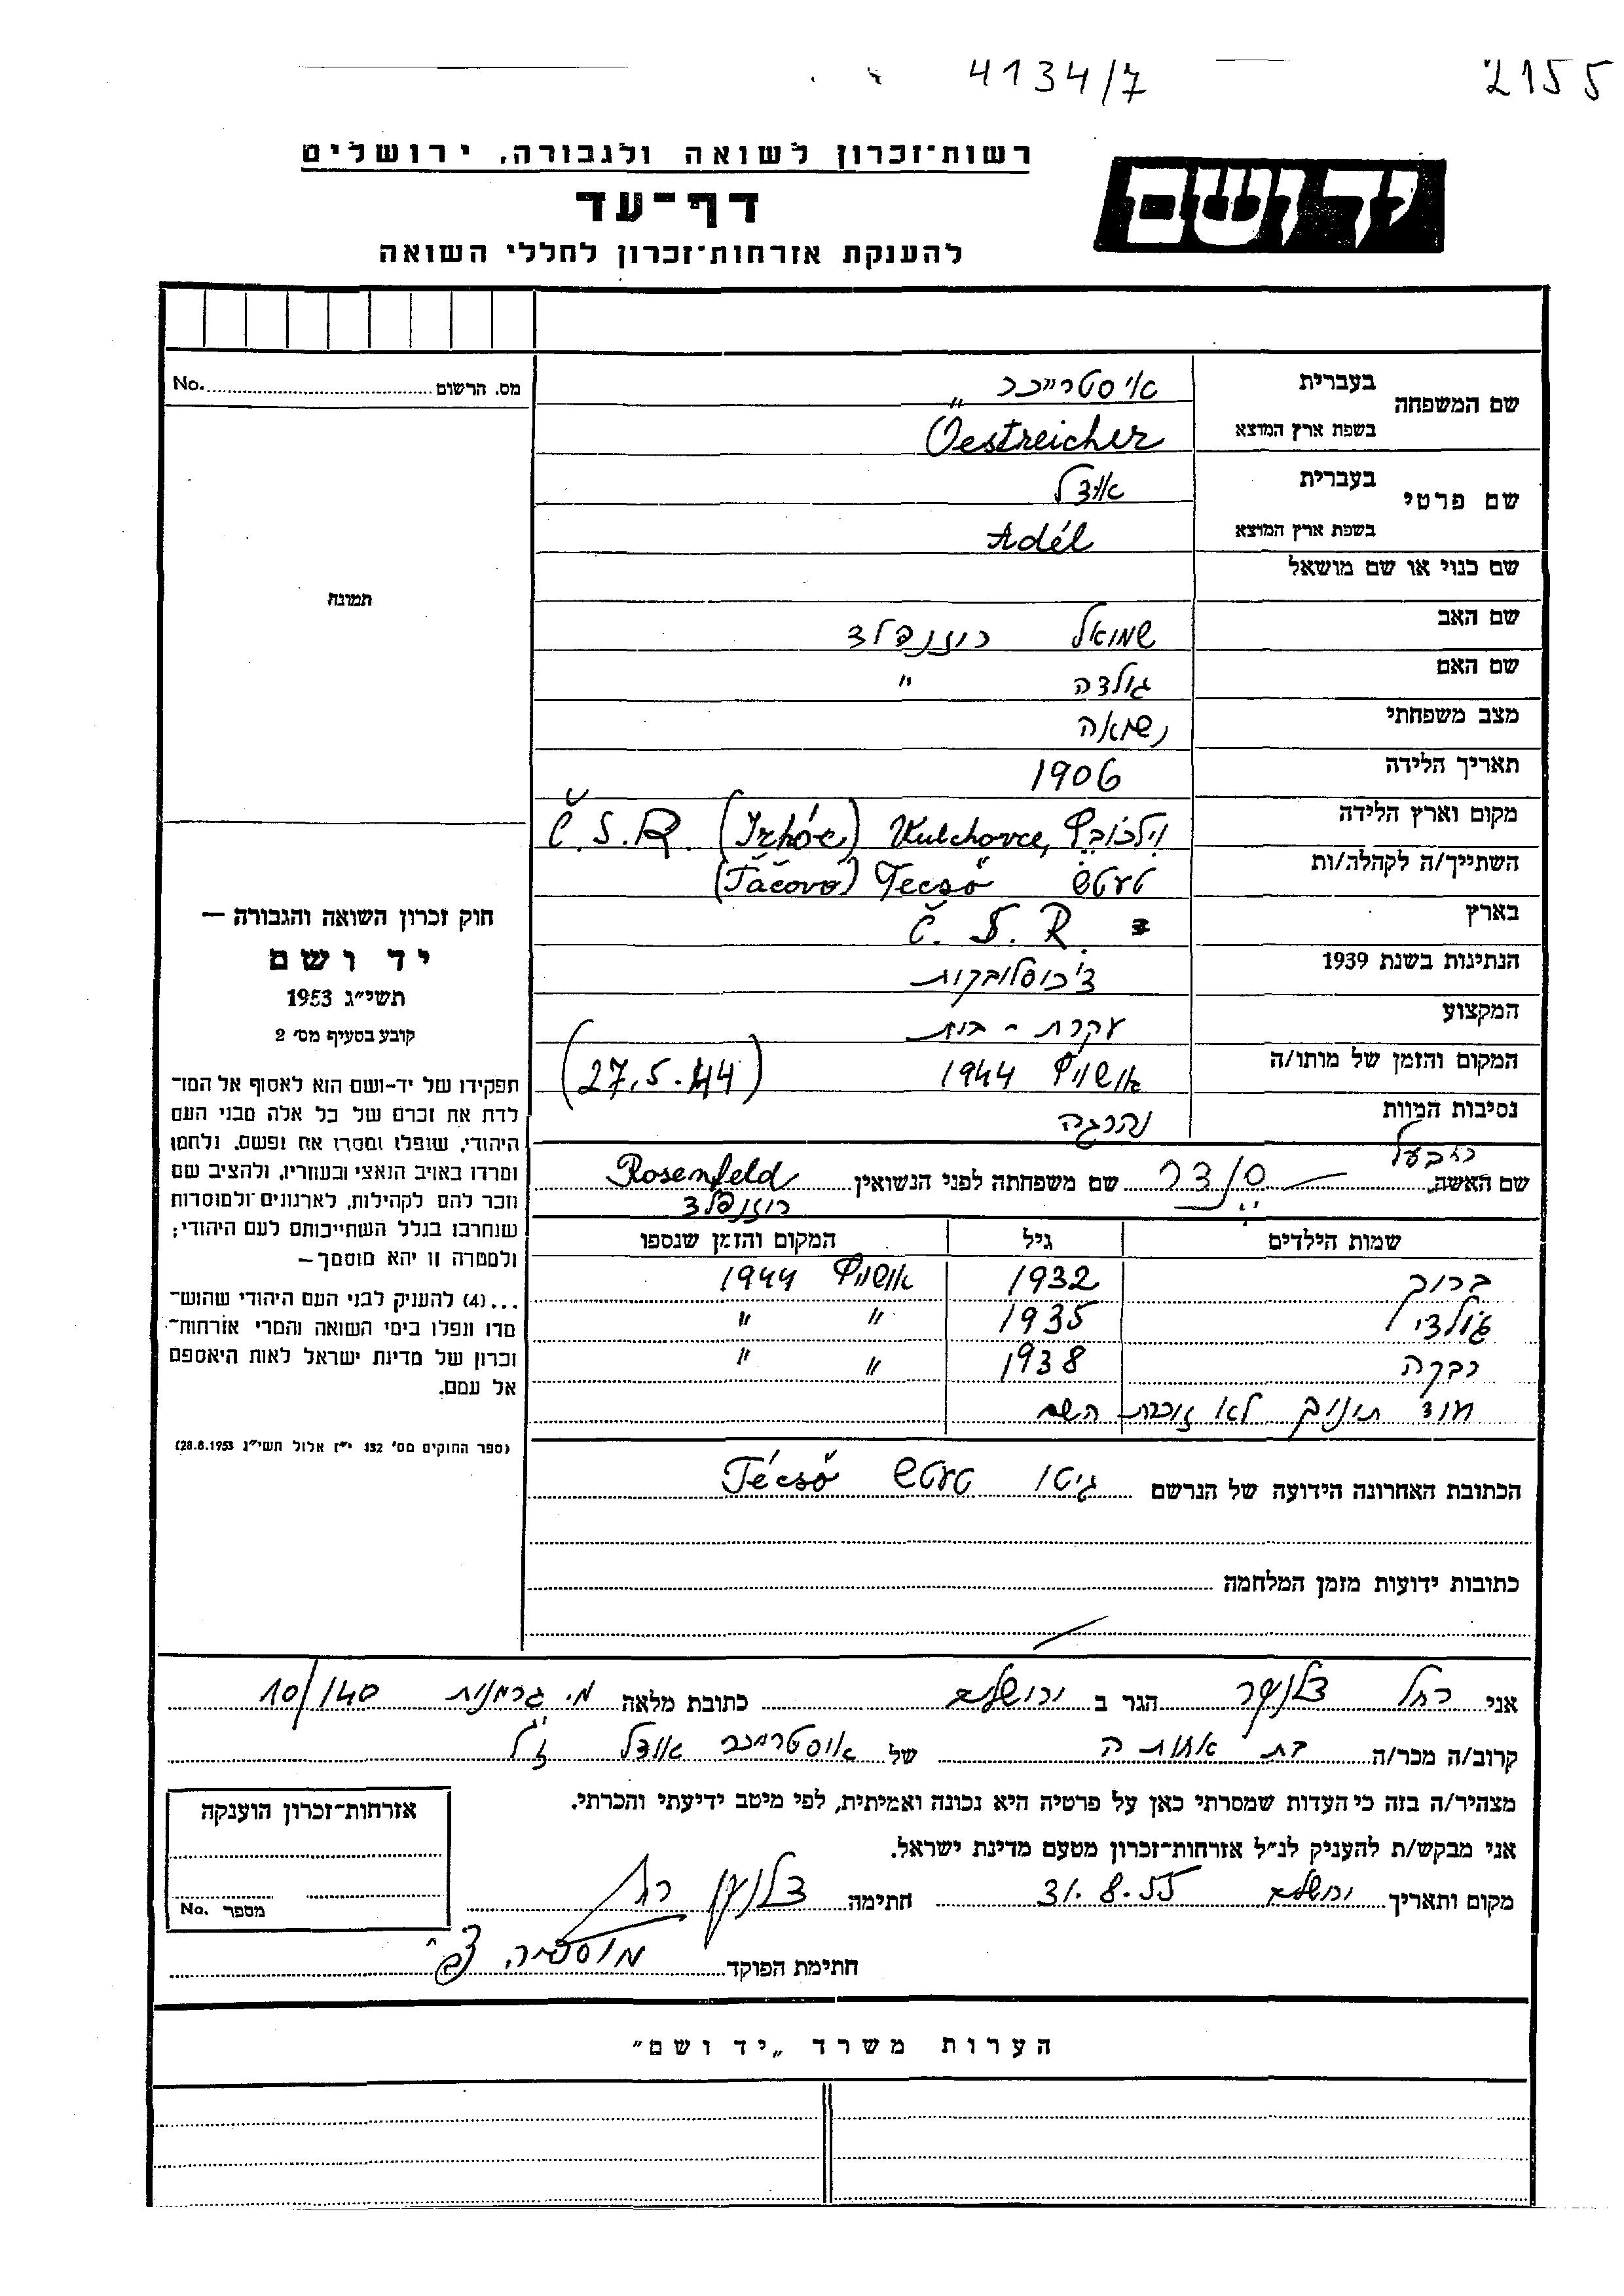 4134/7
2155
רשות־זכרון לשואה ולגבורה, ירושלים
יד ושם
דף־עד
להענקת אזרחות־זכרון לחללי השואה
מס. הרשום No.
שם המשפחה
בעברית
בשפת ארץ המוצא
Oestreicher
שם פרטי
בעברית אידל
בשפת ארץ המוצא
Adél
שם כנוי או שם מושאל
תמונה
שם האב שמואל רוזנפלד
שם האם גולדה "
מצב משפחתי נשואה
תאריך הלידה 1906
מקום וארץ הלידה Vulchovce, (Irhóc) Č.S.R.
השתייך/ה לקהלה/ות טעטש Técső (Tačovo)
בארץ Č. S. R.
הנתינות בשנת 1939
המקצוע עקרת - בית
המקום והזמן של מותו/ה אושויץ 1944 (27.5.44)
נסיבות המוות נהרגה
חוק זכרון השואה והגבורה —
יד ושם
תשי"ג 1953
קובע בסעיף מס' 2
תפקידו של יד-ושם הוא לאסוף אל המו־
לדת את זכרם של כל אלה מבני העם
היהודי, שנפלו ומסרו את נפשם, נלחמו
ומרדו באויב הנאצי ובעוזריו, ולהציב שם
וזכר להם לקהילות, לארגונים ולמוסדות
שנחרבו בגלל השתייכותם לעם היהודי;
ולמטרה זו יהא מוסמך—
...(4) להעניק לבני העם היהודי שהוש־
מדו ונפלו בימי השואה והמרי אזרחות־
זכרון של מדינת ישראל לאות היאספם
אל עמם.
(ספר החוקים מס' 132 י"ז אלול תשי"ג 28.8.1953)
הבעל
שם האשה סנדר שם משפחתה לפני הנשואין Rosenfeld
רוזנפלד
שמות הילדים גיל המקום והזמן שנספו
ברוך 1932 אושויץ 1944
1935 " "
רבקה 1938 " "
עוד לא זוכרת השם
הכתובת האחרונה הידועה של הנרשם גיטו טעטש Técső
כתובות ידועות מזמן המלחמה
אני רחל הגר ב ירושלים כתובת מלאה 10/140
קרוב/ה מכר/ה בת אחותה של אידל ז"ל
מצהיר/ה בזה כי העדות שמסרתי כאן על פרטיה היא נכונה ואמיתית, לפי מיטב ידיעתי והכרתי.
אני מבקש/ת להעניק לנ"ל אזרחות־זכרון מטעם מדינת ישראל.
מקום ותאריך ירושלים 31.8.55 חתימה
חתימת הפוקד
אזרחות־זכרון הוענקה
מספר No.
הערות משרד „יד ושם"